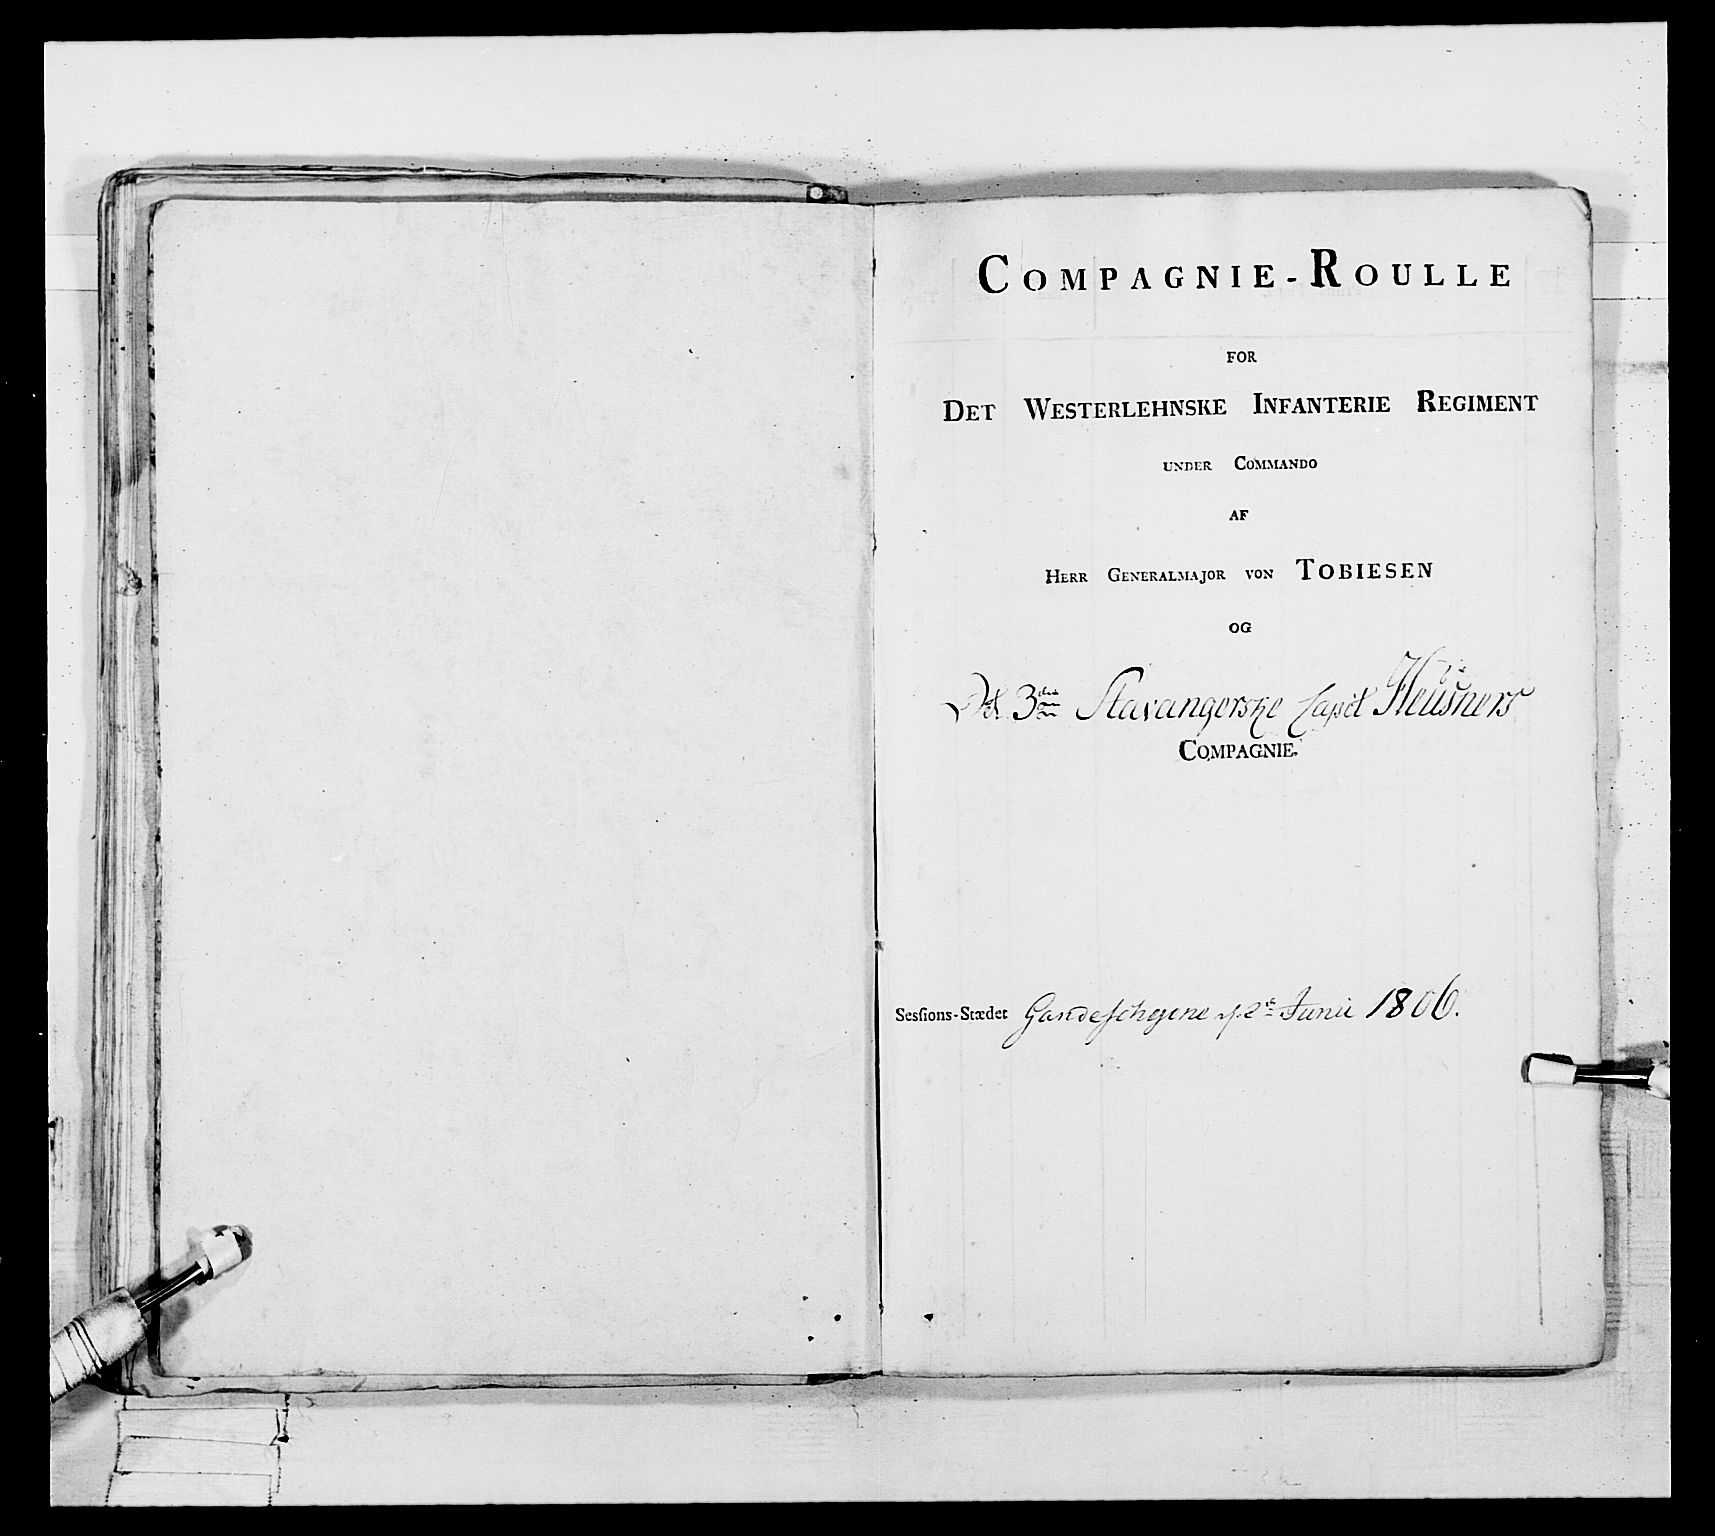 COMPAGNIE-ROULLE
FOR
DET WESTERLEHNSKE INFANTERIE REGIMENT
UNDER COMMANDO
AF
HERR GENERALMAJOR VON TOBIESEN
OG
Det 3die Stavangerske Capit Heüsners
COMPAGNIE.
Sesſions-Stædet Gandeschgene d. 2t Junii 1806.